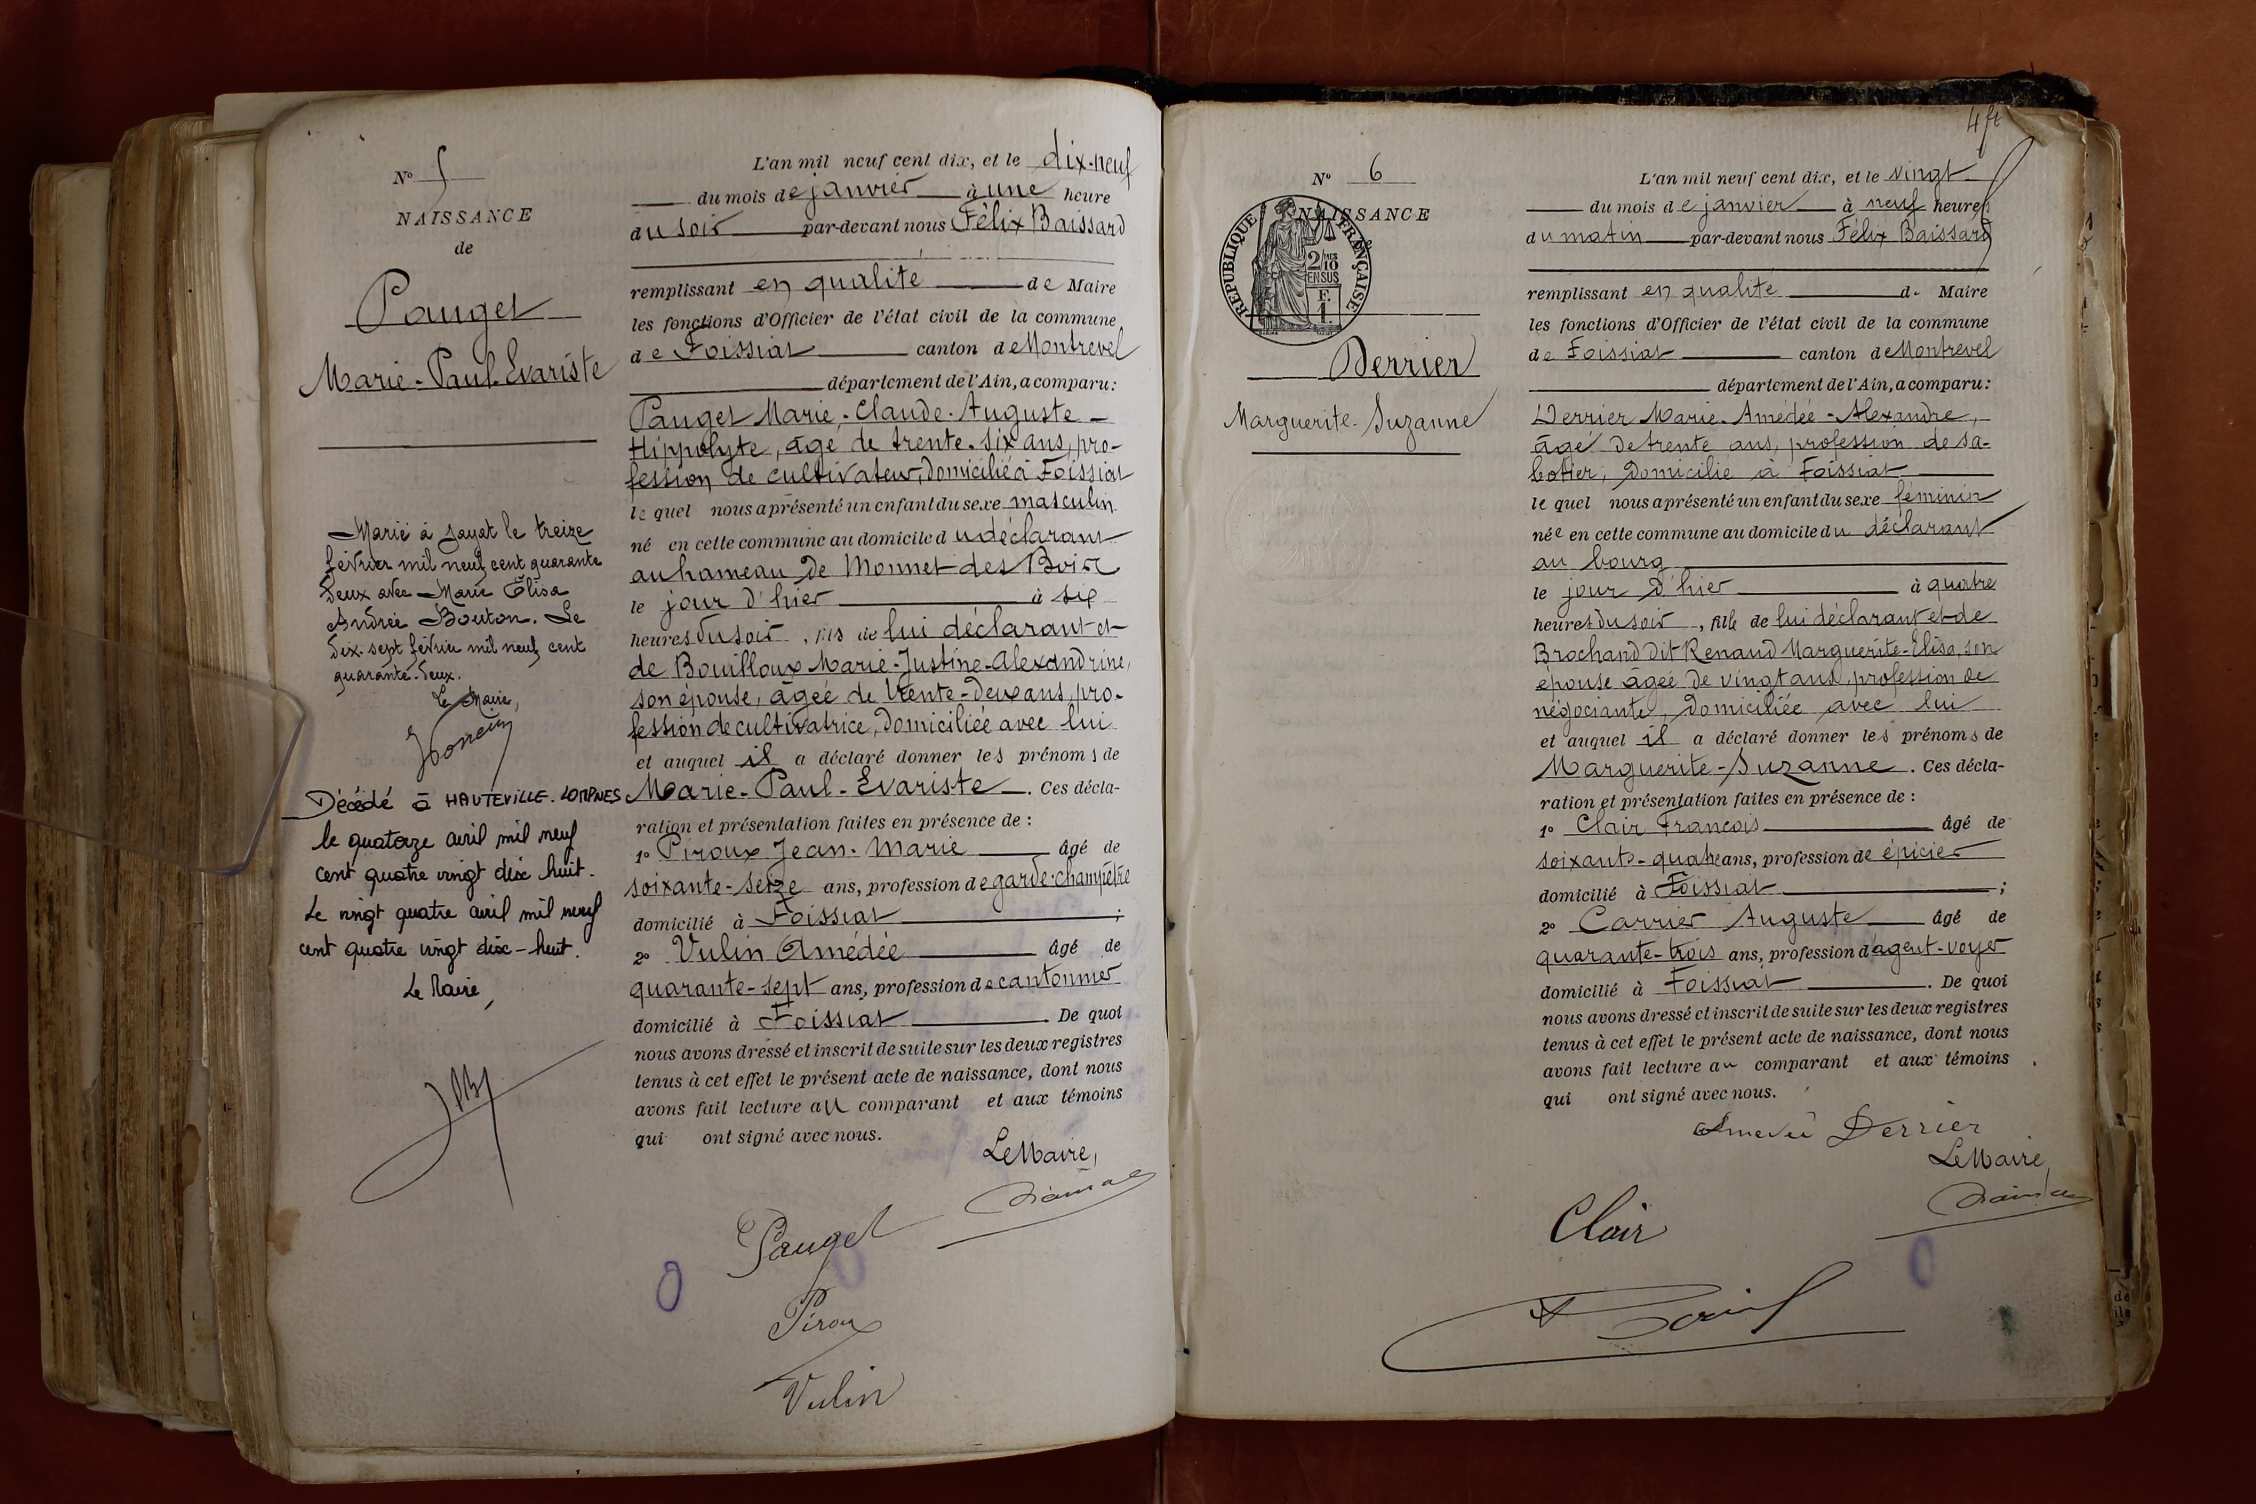 N° 5
NAISSANCE
de
Pauget
Marie-Paul-Evariste
Marié à Jayat le treize
février mil neuf cent quarante
deux avec Marie Elisa
Andrée Bouton. Le
dix-sept février mil neuf cent
quarante-deux.
Le Maire,
Décédé à HAUTEVILLE-LOMPNES
le quatorze avril mil neuf
cent quatre vingt dix huit.
Le vingt quatre avril mil neuf
cent quatre vingt dix-huit.
Le Maire,
L'an mil neuf cent dix, et le dix-neuf
du mois de janvier à une heure
du soir par-devant nous Félix Baissard
remplissant en qualité de Maire
les fonctions d'Officier de l'état civil de la commune
de Foissiat canton de Montrevel
département de l'Ain, a comparu:
Pauget Marie-Claude-Auguste-
Hippolyte, âgé de trente-six ans, pro-
fession de cultivateur, domicilié à Foissiat
lequel nous a présenté un enfant du sexe masculin
né en cette commune au domicile du déclarant
au hameau de Monnet-des-Bois
le jour d'hier à six
heures du soir, fils de lui déclarant et
de Bouilloux Marie-Justine-Alexandrine,
son épouse, âgée de trente-deux ans, pro-
fession de cultivatrice, domiciliée avec lui
et auquel il a déclaré donner les prénoms de
Marie-Paul-Evariste. Ces décla-
ration et présentation faites en présence de :
1° Piroux Jean-Marie âgé de
soixante-seize ans, profession de garde-champêtre
domicilié à Foissiat ;
2° Vulin Amédée âgé de
quarante-sept ans, profession de cantonnier
domicilié à Foissiat. De quoi
nous avons dressé et inscrit de suite sur les deux registres
tenus à cet effet le présent acte de naissance, dont nous
avons fait lecture au comparant et aux témoins
qui ont signé avec nous.
Le Maire,
Pauget
Piroux
Vulin
4 ft
N° 6
NAISSANCE
REPUBLIQUE FRANÇAISE
2/10 EN SUS
F.
1.
Derrier
Marguerite-Suzanne
L'an mil neuf cent dix, et le vingt
du mois de janvier à neuf heures
du matin par-devant nous Félix Baissard
remplissant en qualité de Maire
les fonctions d'Officier de l'état civil de la commune
de Foissiat canton de Montrevel
département de l'Ain, a comparu:
Derrier Marie-Amédée-Alexandre,
âgé de trente ans, profession de sa-
botier, domicilié à Foissiat
lequel nous a présenté un enfant du sexe féminin
née en cette commune au domicile du déclarant
au bourg
le jour d'hier à quatre
heures du soir, fille de lui déclarant et de
Brochand dit Renaud Marguerite-Elisa, son
épouse âgée de vingt ans, profession de
négociante, domiciliée avec lui
et auquel il a déclaré donner les prénoms de
Marguerite-Suzanne. Ces décla-
ration et présentation faites en présence de :
1° Clair François âgé de
soixante-quatre ans, profession de épicier
domicilié à Foissiat ;
2° Carrier Auguste âgé de
quarante-trois ans, profession d'agent-voyer
domicilié à Foissiat. De quoi
nous avons dressé et inscrit de suite sur les deux registres
tenus à cet effet le présent acte de naissance, dont nous
avons fait lecture au comparant et aux témoins
qui ont signé avec nous.
Amedée Derrier
Le Maire,
Clair